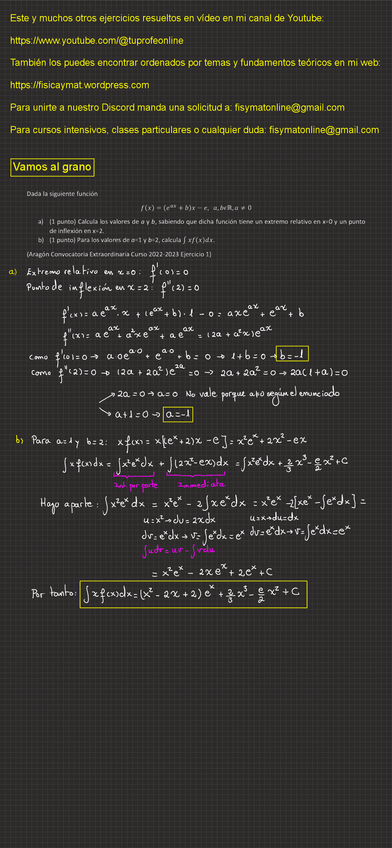 Este y muchos otros ejercicios resueltos en vídeo en mi canal de Youtube:
https://www.youtube.com/@tuprofeonline
También los puedes encontrar ordenados por temas y fundamentos teóricos en mi web:
https://fisicaymat.wordpress.com
Para unirte a nuestro Discord manda una solicitud a: fisymatonline@gmail.com
Para cursos intensivos, clases particulares o cualquier duda: fisymatonline@gmail.com
Vamos al grano
Dada la siguiente función
f(x) = (e^{ax} + b)x − e, a, b∈ℝ, a ≠ 0
a) (1 punto) Calcula los valores de a y b, sabiendo que dicha función tiene un extremo relativo en x=0 y un punto
de inflexión en x=2.
b) (1 punto) Para los valores de a=1 y b=2, calcula ∫ xf(x)dx.
(Aragón Convocatoria Extraordinaria Curso 2022-2023 Ejercicio 1)
a) Extremo relativo en x=0: f'(0)=0
Punto de inflexión en x=2: f''(2)=0
f'(x) = a e^{ax}·x + (e^{ax}+b)·1 − 0 = a x e^{ax} + e^{ax} + b
f''(x) = a e^{ax} + a²x e^{ax} + a e^{ax} = (2a + a²x)e^{ax}
como f'(0)=0 → a·0 e^{a·0} + e^{a·0} + b = 0 → 1+b=0 → b=-1
como f''(2)=0 → (2a + 2a²)e^{2a} = 0 → 2a + 2a² = 0 → 2a(1+a)=0
→ 2a=0 → a=0 No vale porque a≠0 según el enunciado
→ a+1=0 → a=-1
b) Para a=1 y b=2: x f(x) = x[(e^x+2)x − e] = x²e^x + 2x² − ex
∫x f(x)dx = ∫x²e^x dx + ∫(2x²−ex)dx = ∫x²e^x dx + 2/3 x³ − e/2 x² + C
Int por parte Inmediata
Hago aparte: ∫x²e^x dx = x²e^x − 2∫x e^x dx = x²e^x − 2[xe^x − ∫e^x dx] =
u=x² → du=2xdx u=x → du=dx
dv=e^x dx → v=∫e^x dx=e^x dv=e^x dx → v=∫e^x dx=e^x
∫udv = uv − ∫vdu
= x²e^x − 2xe^x + 2e^x + C
Por tanto: ∫x f(x)dx = (x² − 2x + 2) e^x + 2/3 x³ − e/2 x² + C